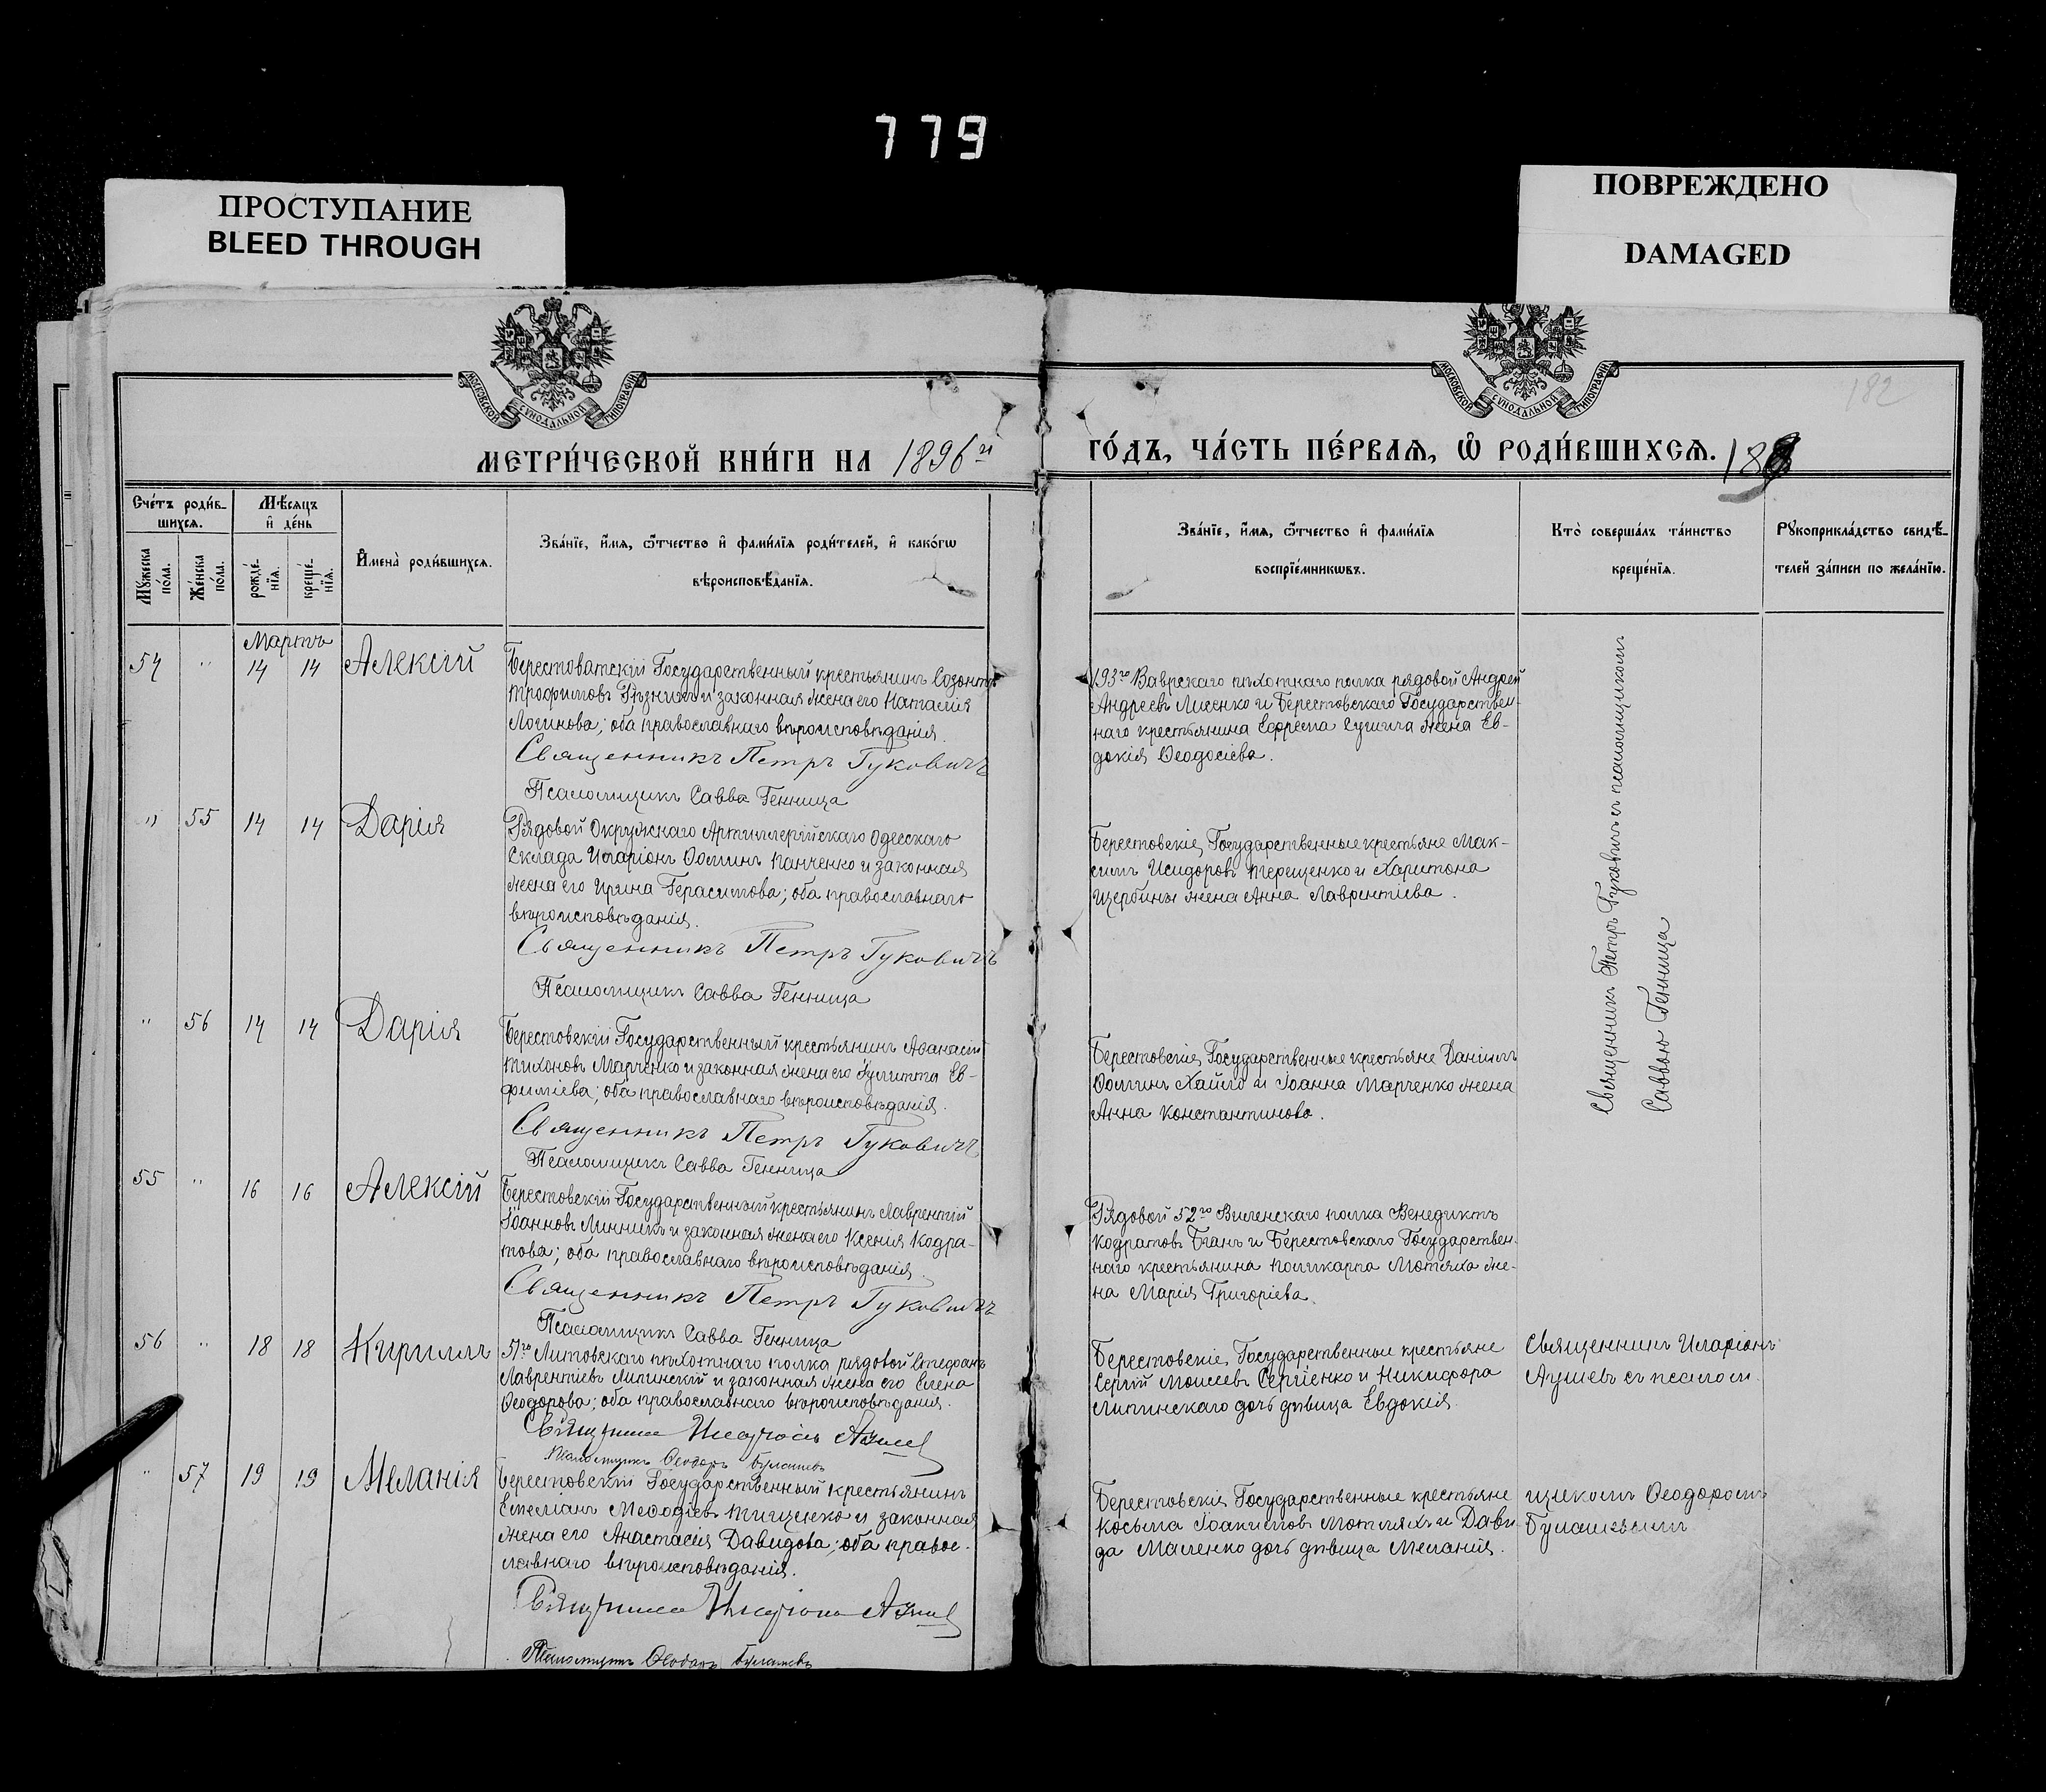 779
ПРОСТУПАНИЕ
BLEED THROUGH
ПОВРЕЖДЕНО
DAMAGED
МОСКОВСКОЙ СѴНОДАЛЬНОЙ ТИПОГРАФІИ
МОСКОВСКОЙ СѴНОДАЛЬНОЙ ТИПОГРАФІИ
182
МЕТРИ́ЧЕСКОЙ КНИ́ГИ НА 1896й
ГО́ДЪ, ЧА́СТЬ ПЕ́РВАѦ, Ѡ҆ РОДИ́ВШИХСѦ.
Сче́тъ роди́в-
шихсѧ.
Мѣ́сѧцъ
и҆ де́нь
Мꙋ́жеска
пола.
Же́нска
пола.
рожде́-
нїѧ.
креще́-
нїѧ.
И҆мена̀ роди́вшихсѧ.
Зва́нїе, и҆́мѧ, ѻ҆́тчество и҆ фами́лїѧ роди́телей, и҆ како́гѡ
вѣроисповѣ́данїѧ.
Зва́нїе, и҆́мѧ, ѻ҆́тчество и҆ фами́лїѧ
воспрїе́мникѡвъ.
Кто̀ соверша́лъ та́инство
креще́нїѧ.
Рꙋкоприкла́дство свидѣ́-
телей за́писи по жела́нїю.
Мартъ
54 " 14 14 Алексій
Берестоватскій Государственный крестьянинъ Созонтъ
Трофимовъ и законная жена его Наталія
Логинова; оба православнаго вѣроисповѣданія.
Священникъ Петръ Гуковичъ
Псаломщикъ Савва Генница
193го Ваврскаго пѣхотнаго полка рядовой Андрей
Андреевъ Лисенко и Берестовскаго Государствен-
наго крестьянина Ефрема жена Ев-
докія Ѳеодосіева.
" 55 14 14 Дарія
Рядовой Окружнаго Артиллерійскаго Одесскаго
Склада Иларіонъ Ѳоминъ Панченко и законная
жена его Ирина Герасимова; оба православнаго
вѣроисповѣданія.
Священникъ Петръ Гуковичъ
Псаломщикъ Савва Генница
Берестовскіе Государственные крестьяне Мак-
симъ Исидоровъ Терещенко и Харитона
Щербины жена Анна Лаврентіева.
" 56 14 14 Дарія
Берестовскій Государственный крестьянинъ Аѳанасій
Тихоновъ Марченко и законная жена его Іулитта Ев-
фиміева; оба православнаго вѣроисповѣданія.
Священникъ Петръ Гуковичъ
Псаломщикъ Савва Генница
Берестовскіе Государственные крестьяне Даніилъ
Ѳоминъ Хайло и Іоанна Марченко жена
Анна Константинова.
Священникъ Петръ Гуковичъ съ псаломщикомъ
Саввою Генница
55 " 16 16 Алексій
Берестовскій Государственный крестьянинъ Лаврентій
Іоанновъ Линникъ и законная жена его Ксенія Кодра-
това; оба православнаго вѣроисповѣданія.
Священникъ Петръ Гуковичъ
Псаломщикъ Савва Генница
Рядовой 52го Виленскаго полка Венедиктъ
Кодратовъ и Берестовскаго Государствен-
наго крестьянина Поликарпа Мотляха же-
на Марія Григоріева.
56 " 18 18 Кириллъ
51го Литовскаго пѣхотнаго полка рядовой Стефанъ
Лаврентіевъ Липинскій и законная жена его Елена
Ѳеодорова; оба православнаго вѣроисповѣданія.
Священникъ Иларіонъ Аушевъ
Псаломщикъ Ѳеодоръ Булашевъ
Берестовскіе Государственные крестьяне
Сергій Моисеевъ Сергіенко и Никифора
Липинскаго дочь дѣвица Евдокія.
Священникъ Иларіонъ
Аушевъ съ псалом-
" 57 19 19 Меланія
Берестовскій Государственный крестьянинъ
Емеліанъ Меѳодіевъ Тищенко и законная
жена его Анастасія Давидова; оба правос-
лавнаго вѣроисповѣданія.
Священникъ Иларіонъ Аушевъ
Псаломщикъ Ѳеодоръ Булашевъ
Берестовскіе Государственные крестьяне
Косьма Іоакимовъ Мотляхъ и Дави-
да Маленко дочь дѣвица Меланія.
щикомъ Ѳеодоромъ
Булашевымъ